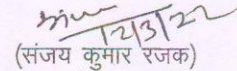 12/3/22
(संजय कुमार रजक)